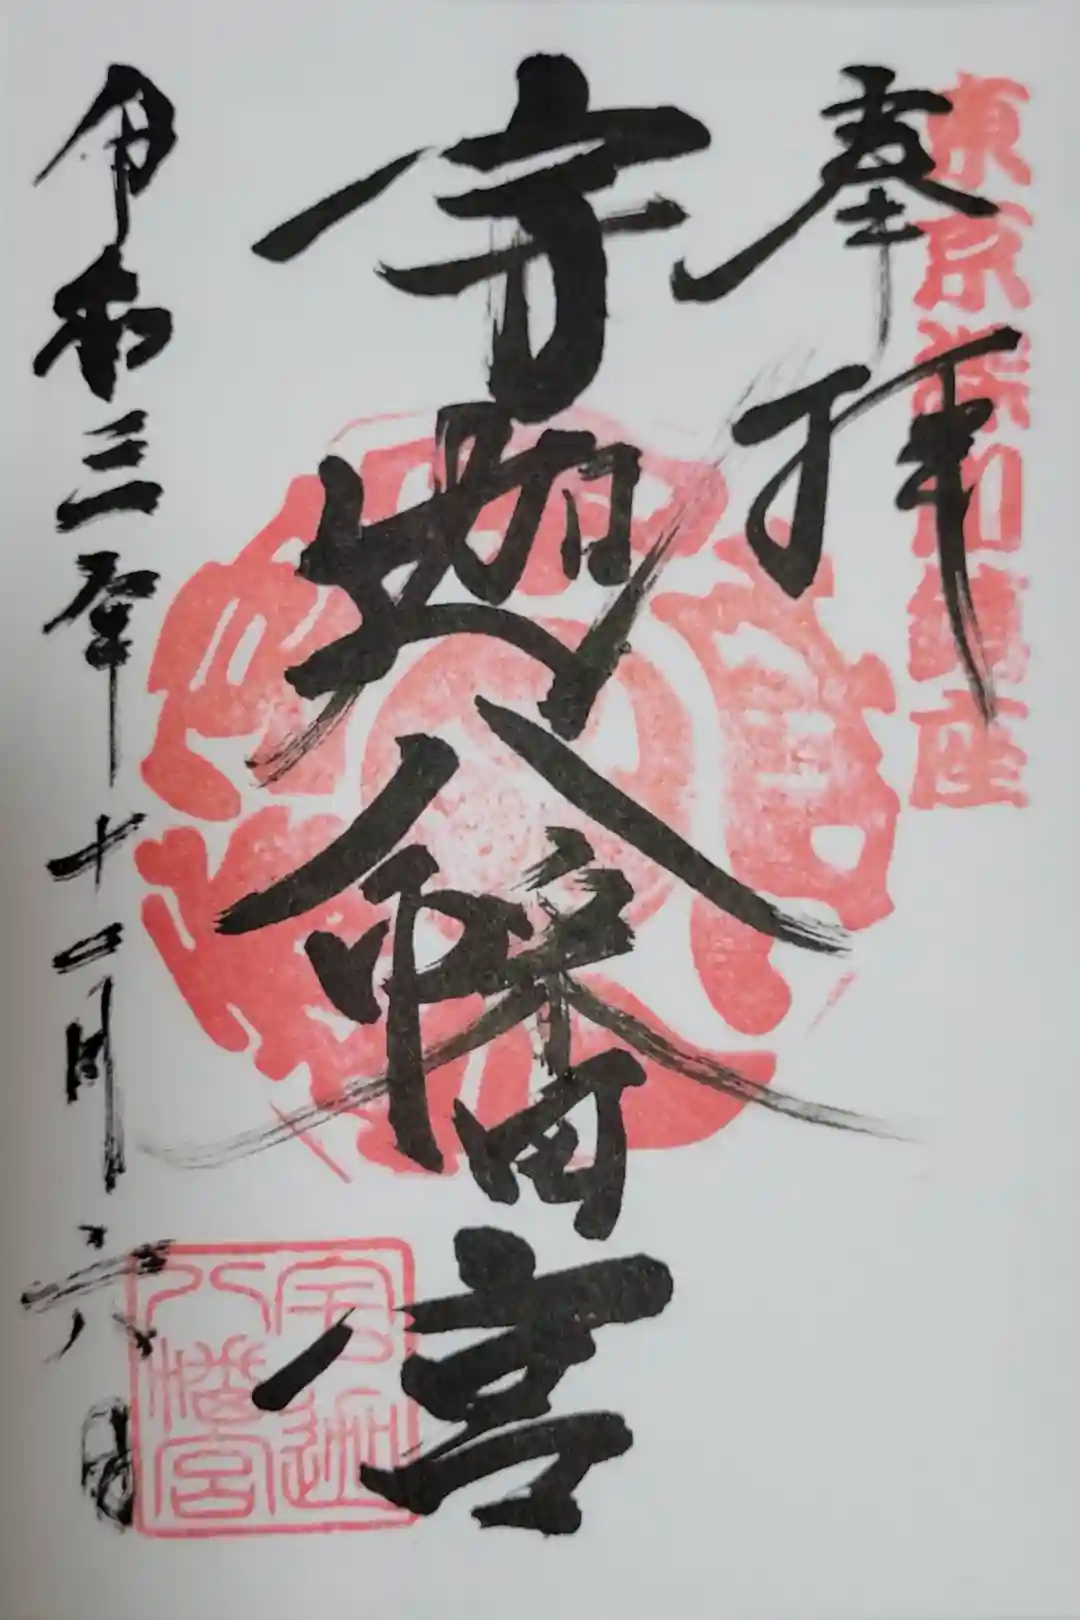 東京深川鎮座
奉拝
宇迦八幡宮
令和三年十二月六日
宇迦
八幡宮